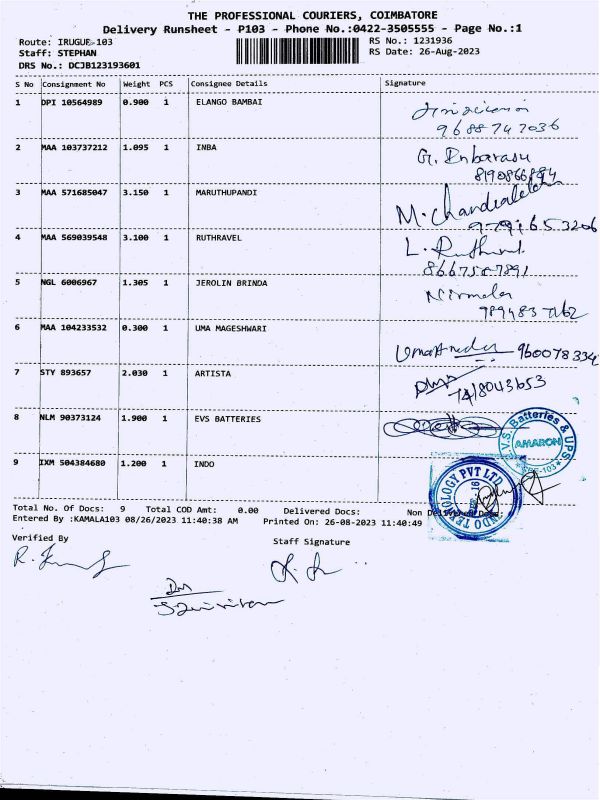 THE PROFESSIONAL COURIERS, COIMBATORE
Delivery Runsheet - P103 - Phone No.:0422-3505555 - Page No.:1
Route: IRUGUE-103
RS No.: 1231936
Staff: STEPHAN
RS Date: 26-Aug-2023
DRS No.: DCJB123193601
S No Consignment No Weight PCS Consignee Details Signature
1 DPI 10564989 0.900 1 ELANGO BAMBAI
9688747036
2 MAA 103737212 1.095 1 INBA G. Inbarasu
3 MAA 571685047 3.150 1 MARUTHUPANDI M. Chandralekha
9791653206
4 MAA 569039548 3.100 1 RUTHRAVEL L.
8667587891
5 NGL 6006967 1.305 1 JEROLIN BRINDA Nirmala
6 MAA 104233532 0.300 1 UMA MAGESHWARI
960078334
7 STY 893657 2.030 1 ARTISTA
8 NLM 90373124 1.900 1 EVS BATTERIES
V.S. Batteries & UPS
AMARON
9 IXM 504384680 1.200 1 INDO
INDO TECHNOLOGY PVT LTD
Total No. Of Docs: 9 Total COD Amt: 0.00 Delivered Docs: Non Delivered Docs:
Entered By :KAMALA103 08/26/2023 11:40:38 AM Printed On: 26-08-2023 11:40:49
Verified By
Staff Signature